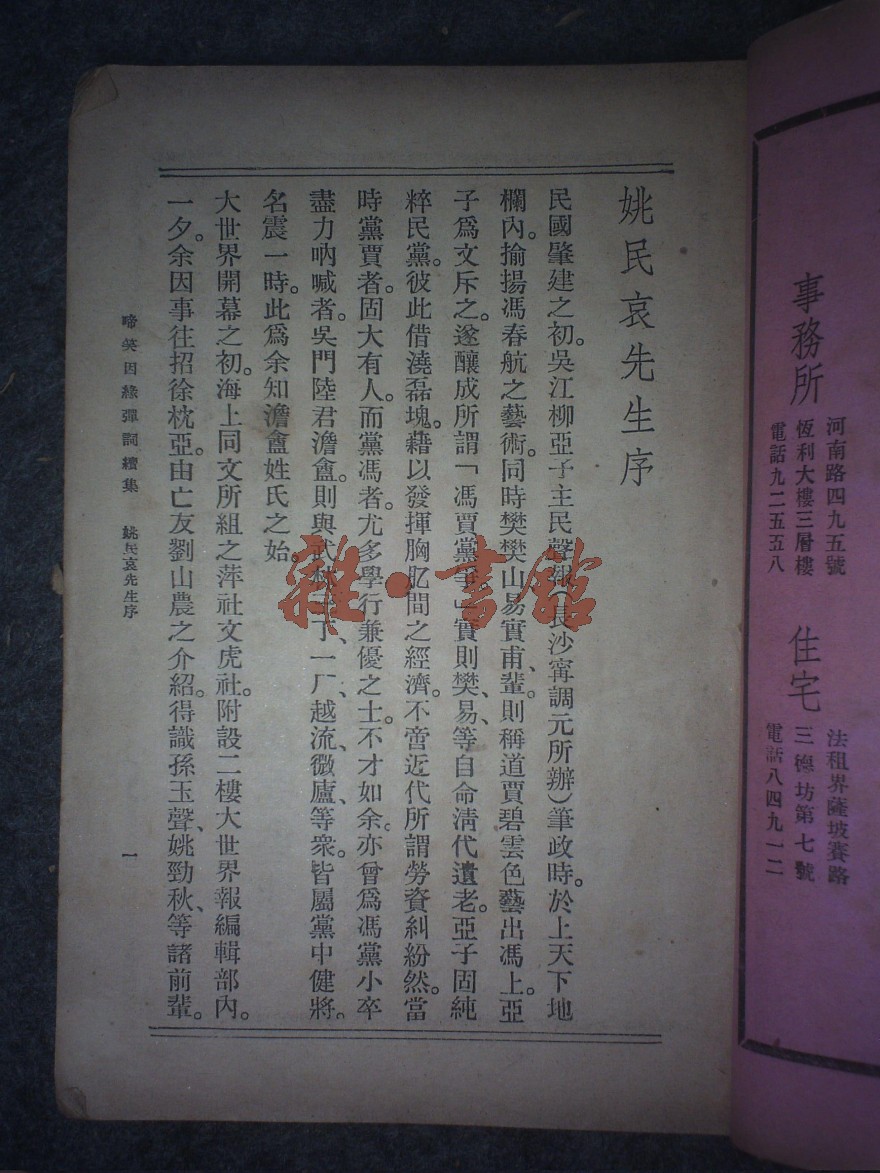 事務所
河南路四九五號
恆利大樓三層樓
電話九二五五八
住宅
法租界薩坡賽路
三德坊第七號
電話八四九一二
姚民哀先生序
民國肇建之初。吳江柳亞子主民聲報(長沙甯調元所辦)筆政時。於上天下地
欄內。揄揚馮春航之藝術。同時樊樊山易實甫、輩。則稱道賈碧雲色藝出馮上。亞
子爲文斥之。遂釀成所謂「馮賈黨爭」實則樊、易、等自命清代遺老。亞子固純
粹民黨。彼此借澆磊塊。藉以發揮胸肊間之經濟。不啻近代所謂勞資糾紛然。當
時黨賈者。固大有人。而黨馮者。尤多學行兼優之士。不才如余。亦曾爲馮黨小卒
盡力吶喊者。吳門陸君澹盦。則與武林 丁、一厂、越流、微廬、等衆。皆屬黨中健將。
名震一時。此爲余知澹盦姓氏之始。
大世界開幕之初。海上同文所組之萍社文虎社。附設二樓大世界報編輯部內。
一夕。余因事往招徐枕亞。由亡友劉山農之介紹。得識孫玉聲、姚勁秋、等諸前輩。
啼笑因緣彈詞續集 姚民哀先生序 一
雜·書館